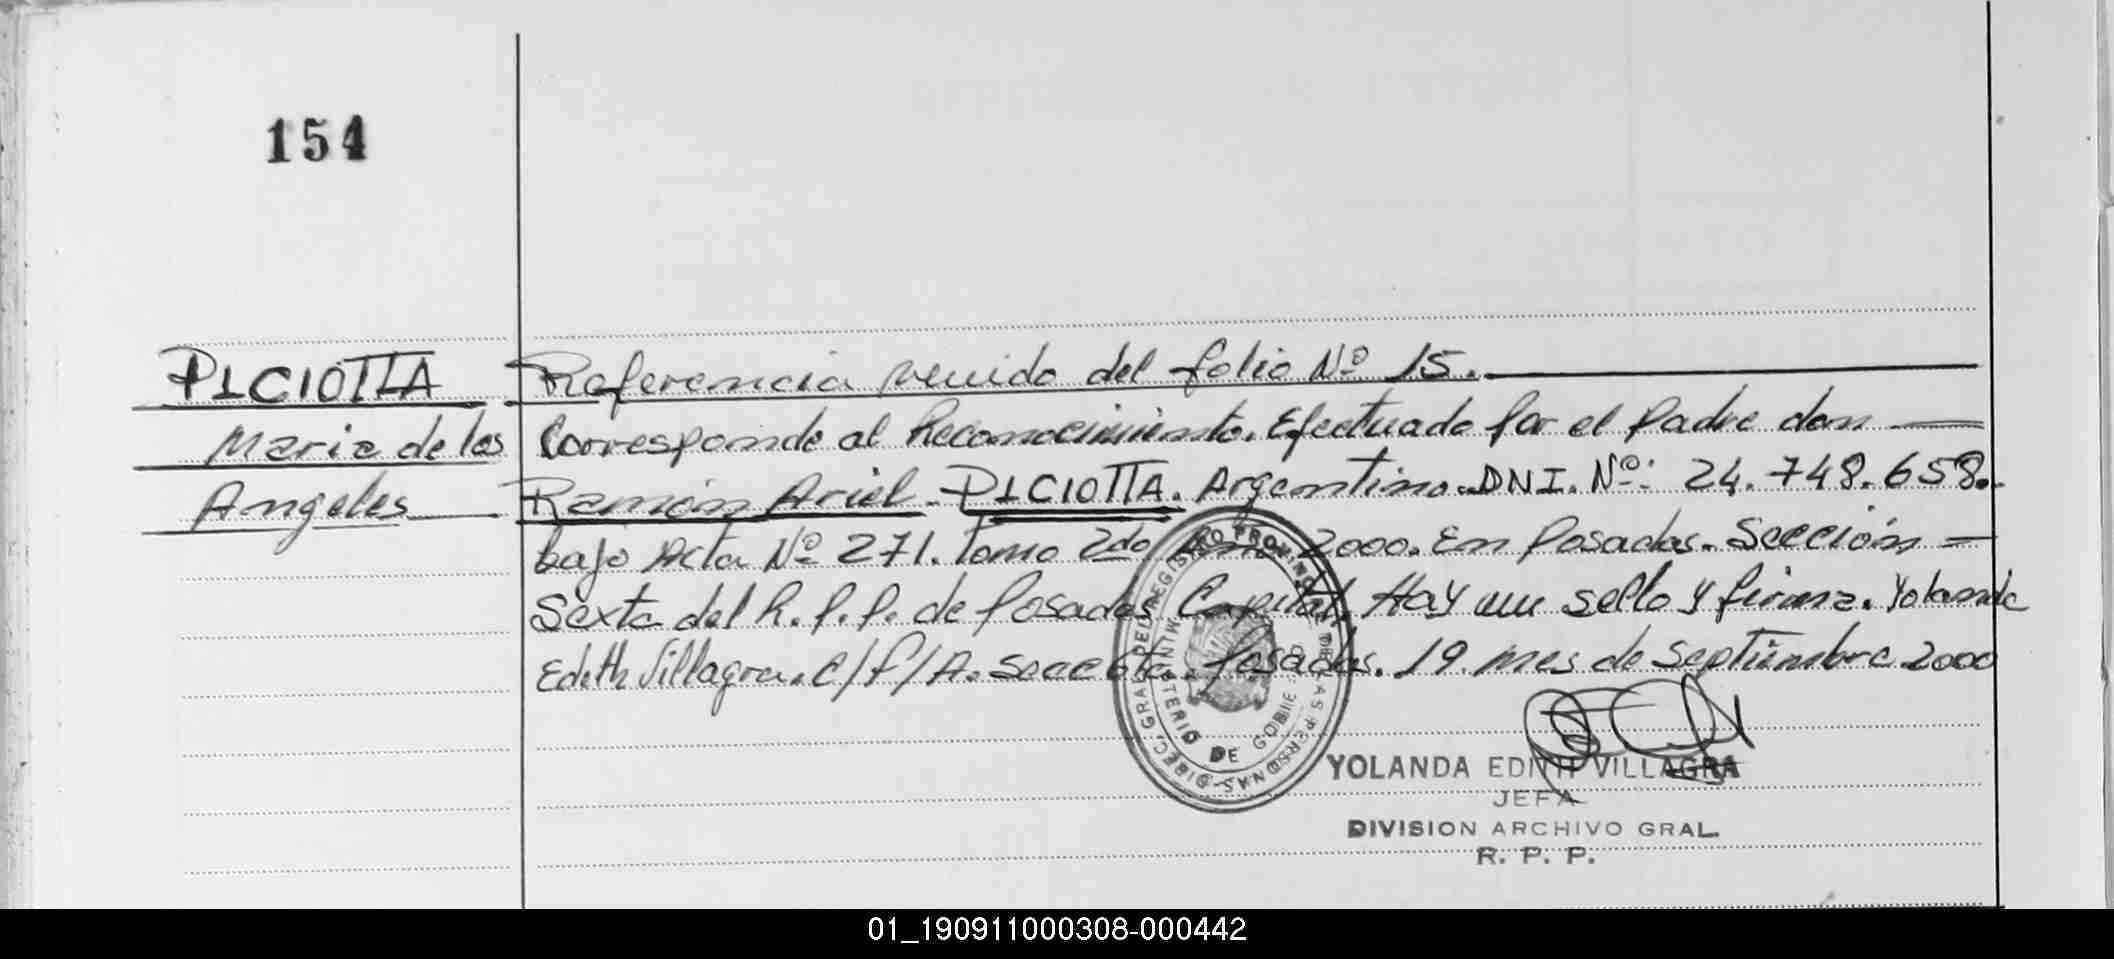 154
PICIOTTA
Maria de los
Angeles
Referencia venido del folio Nº 15.
Corresponde al Reconocimiento. Efectuado por el Padre don
Ramón Ariel PICIOTTA. Argentino. DNI. Nº: 24.748.658.
bajo Acta Nº 271. Tomo 2do Año 2000. En Posadas. Sección
Sexta del R.P.P. de Posadas Capital, Hay un sello y firma. Yolanda
Edith Villagra. C/F/A. Secc 6ta. Posadas. 19. mes de Septiembre 2000
DIREC. GRAL. DEL REGISTRO PROVINC. DE LAS PERSONAS
MINISTERIO DE GOBIE
YOLANDA EDITH VILLAGRA
JEFA
DIVISION ARCHIVO GRAL.
R. P. P.
01_190911000308-000442